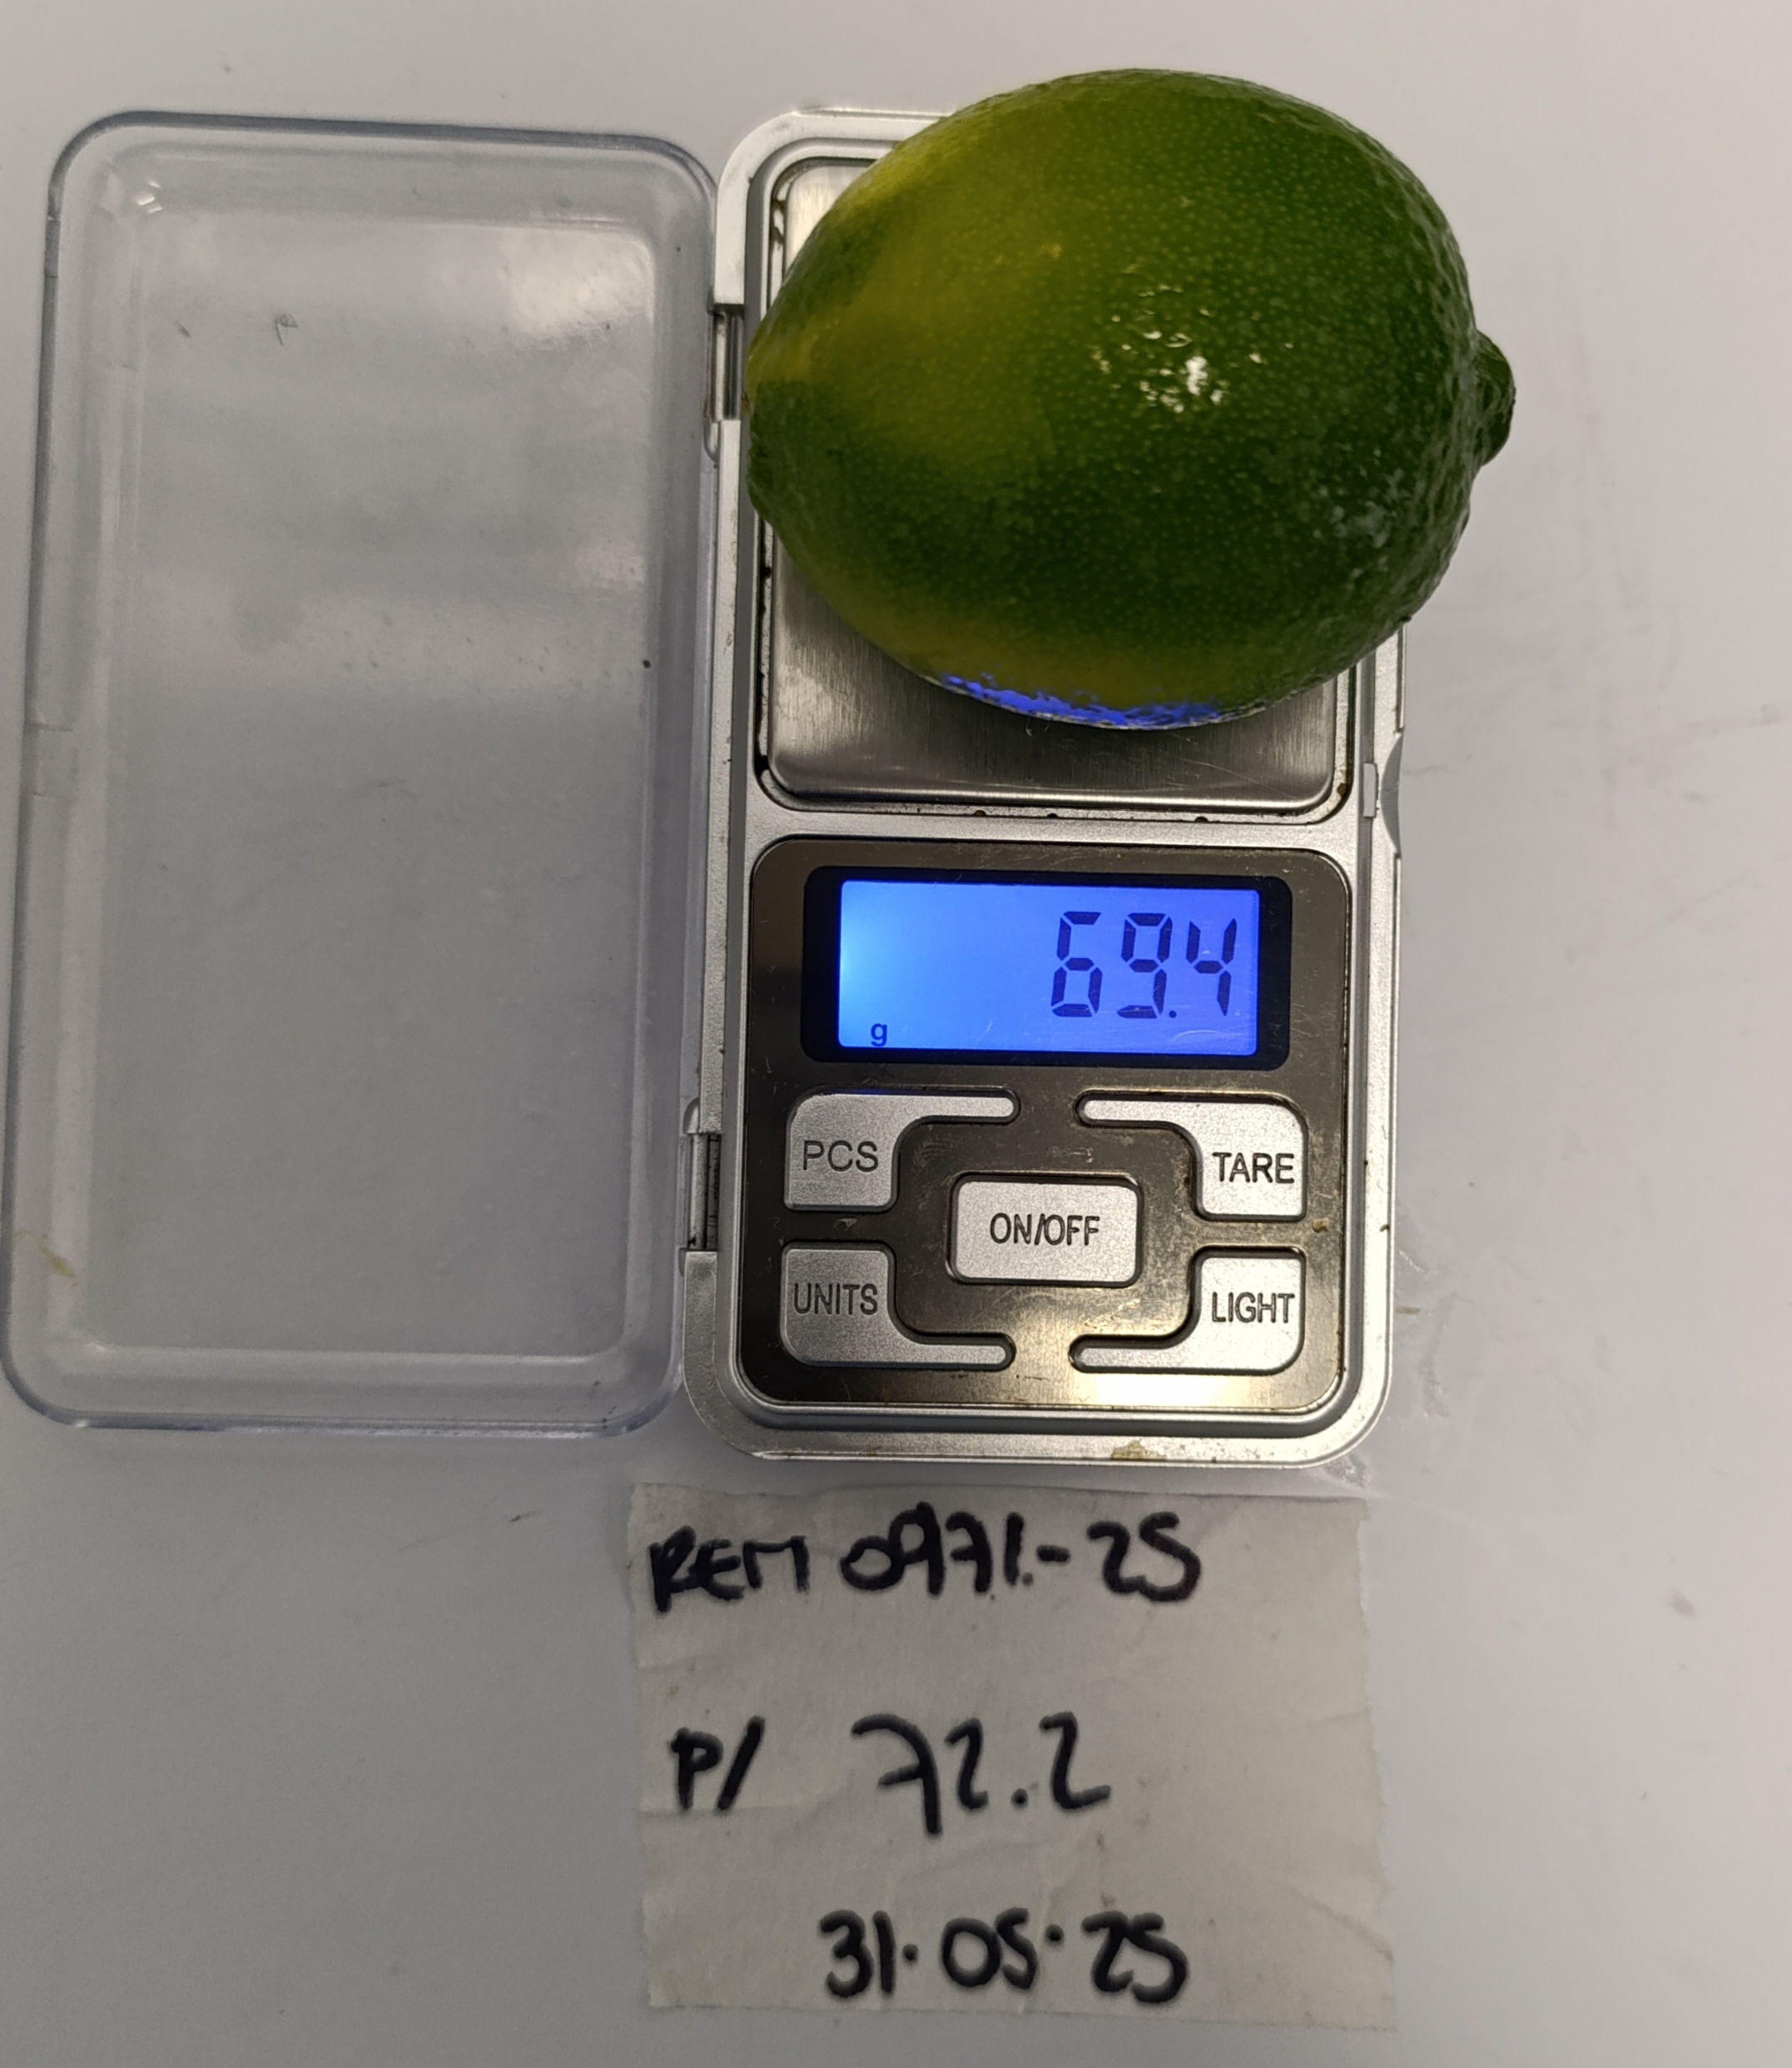 69.4
g
PCS
TARE
ON/OFF
UNITS
LIGHT
REM 0971.-25
P/ 72.2
31.05.25